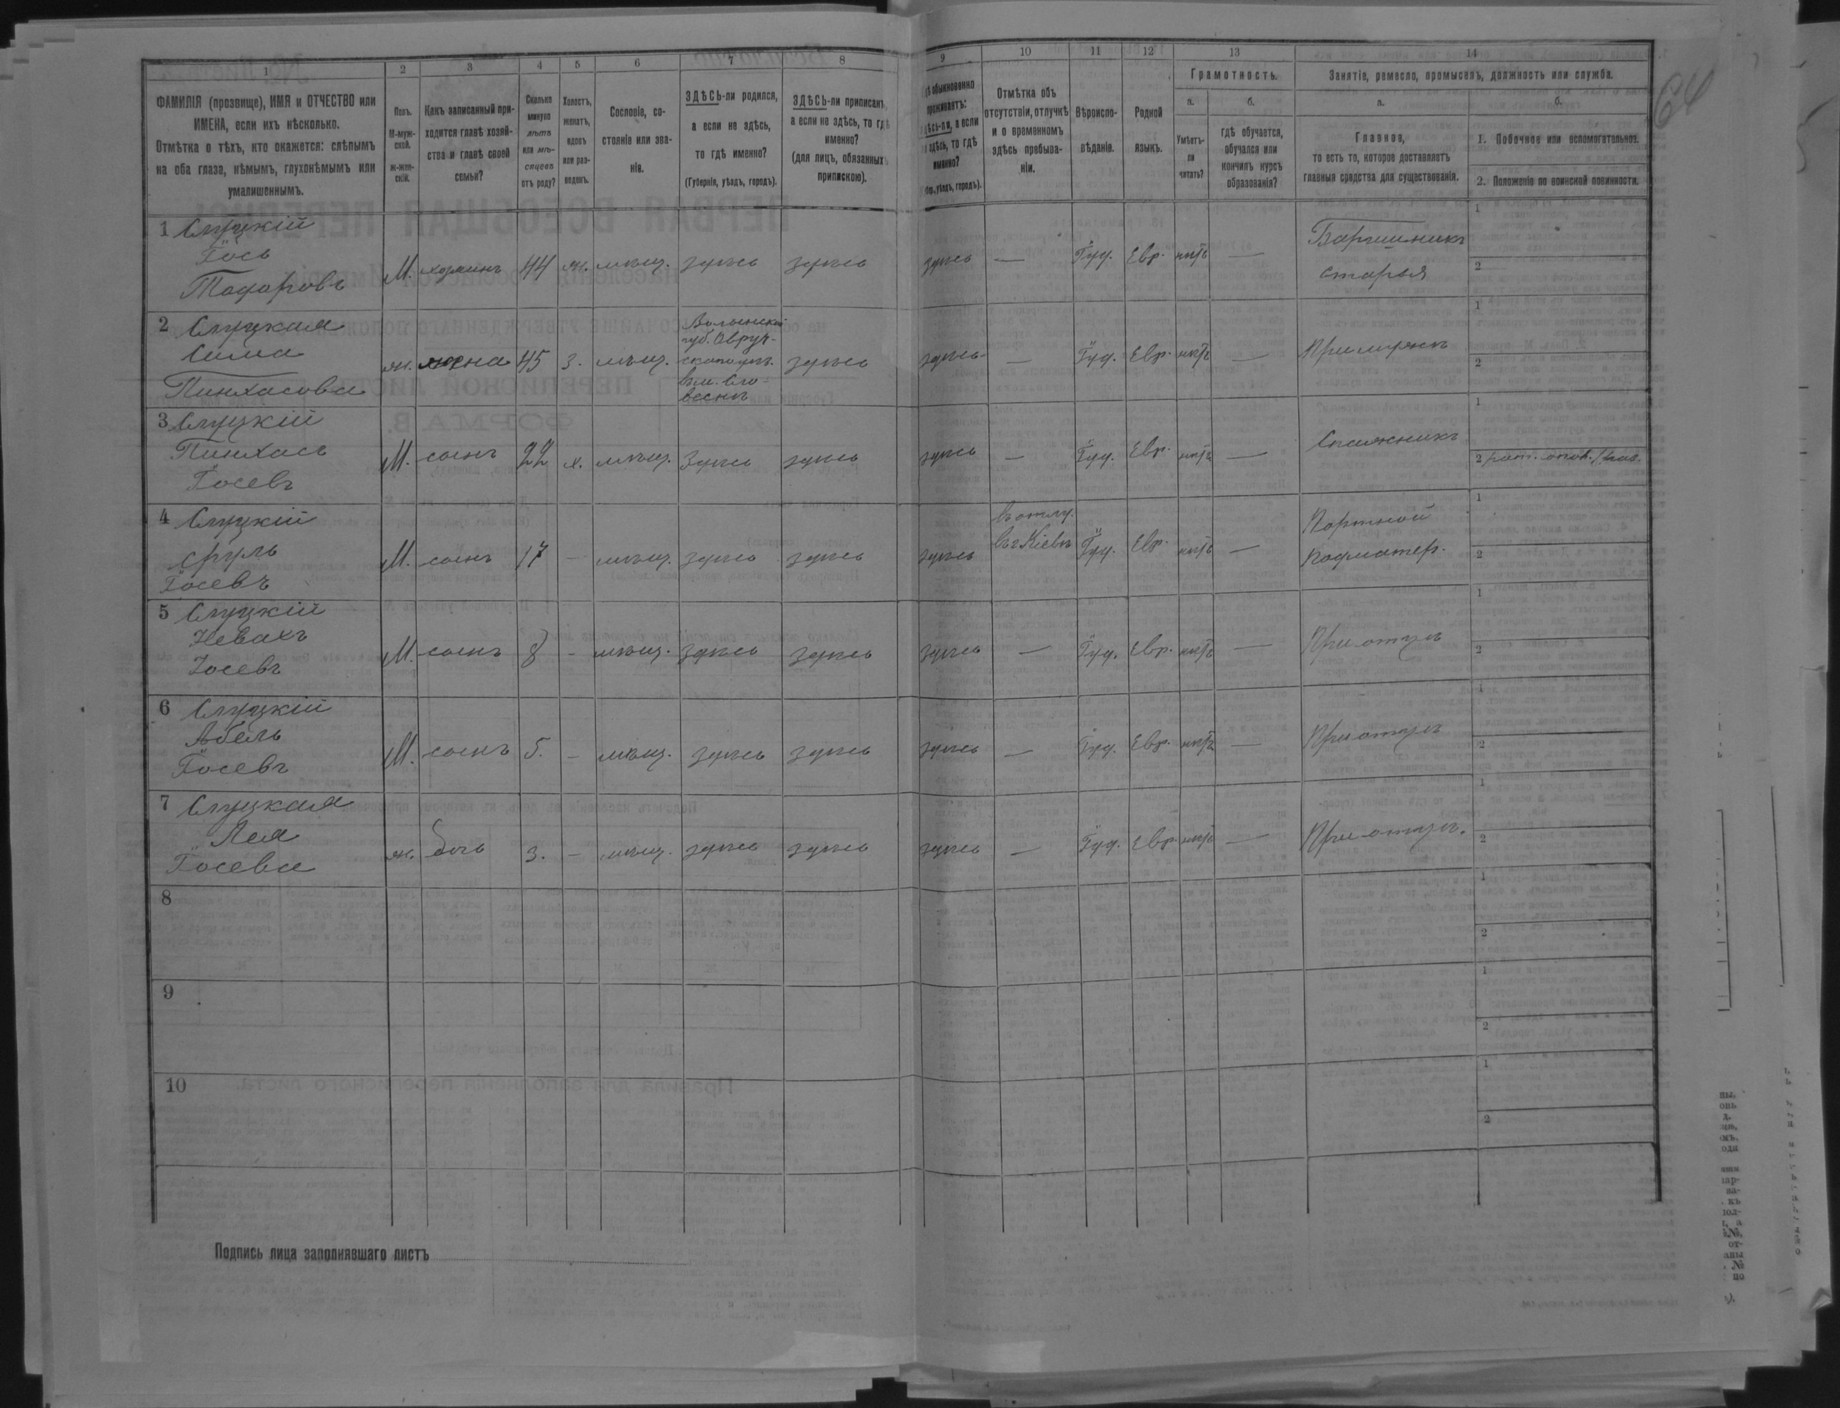 1 2 3 4 5 6 7 8 9 10 11 12 13 14
ФАМИЛІЯ (прозвище), ИМЯ и ОТЧЕСТВО или
ИМЕНА, если ихъ нѣсколько.
Отмѣтка о тѣхъ, кто окажется: слѣпымъ
на оба глаза, нѣмымъ, глухонѣмымъ или
умалишеннымъ.
Полъ.
М-муж-
ской.
ж-жен-
скій.
Какъ записанный при-
ходится главѣ хозяй-
ства и главѣ своей
семьи?
Сколько
минуло
лѣтъ
или мѣ-
сяцевъ
отъ роду?
Холостъ,
женатъ,
вдовъ
или раз-
веденъ.
Сословіе, со-
стояніе или зва-
ніе.
ЗДѢСЬ-ли родился,
а если не здѣсь,
то гдѣ именно?
(Губернія, уѣздъ, городъ).
ЗДѢСЬ-ли приписанъ,
а если не здѣсь, то гдѣ
именно?
(для лицъ, обязанныхъ
припискою).
обыкновенно
проживаетъ:
здѣсь-ли, а если
не здѣсь, то гдѣ
именно?
(Губ., уѣздъ, городъ).
Отмѣтка объ
отсутствіи, отлучкѣ
и о временномъ
здѣсь пребыва-
ніи.
Вѣроиспо-
вѣданіе.
Родной
языкъ.
Грамотность.
а. б.
Умѣетъ-
ли
читать?
гдѣ обучается,
обучался или
кончилъ курсъ
образованія?
Занятіе, ремесло, промыселъ, должность или служба.
а. б.
Главное,
то есть то, которое доставляетъ
главныя средства для существованія.
1. Побочное или вспомогательное.
2. Положеніе по воинской повинности.
64
1 Слуцкій
Іось
М. хозяинъ 44 ж. мѣщ. здѣсь здѣсь здѣсь — Іуд. Евр. нѣтъ —
старья
1
2
2 Слуцкая
Сима
Пинхасова
ж. жена 45 з. мѣщ.
Волынской
губ. Овруч-
здѣсь здѣсь — Іуд. Евр. нѣтъ —
При мужѣ
1
2
3 Слуцкій
Пинхасъ
Іосевъ
М. сынъ 22 х. мѣщ. здѣсь здѣсь здѣсь — Іуд. Евр. нѣтъ —
1
2
4 Слуцкій
Сруль
Іосевъ
М. сынъ 17 — мѣщ. здѣсь здѣсь здѣсь
въ Кіевѣ
Іуд. Евр. нѣтъ —
Портной
подмастер.
1
2
5 Слуцкій
Невахъ
Іосевъ
М. сынъ 8 — мѣщ. здѣсь здѣсь здѣсь — Іуд. Евр. нѣтъ — При отцѣ
1
2
6 Слуцкій
Абель
Іосевъ
М. сынъ 5. — мѣщ. здѣсь здѣсь здѣсь — Іуд. Евр. нѣтъ — При отцѣ
1
2
7 Слуцкая
Лея
Іосева
ж. дочь 3. — мѣщ. здѣсь здѣсь здѣсь — Іуд. Евр. нѣтъ — При отцѣ.
1
2
8
1
2
9
1
2
10
1
2
Подпись лица заполнявшаго листъ